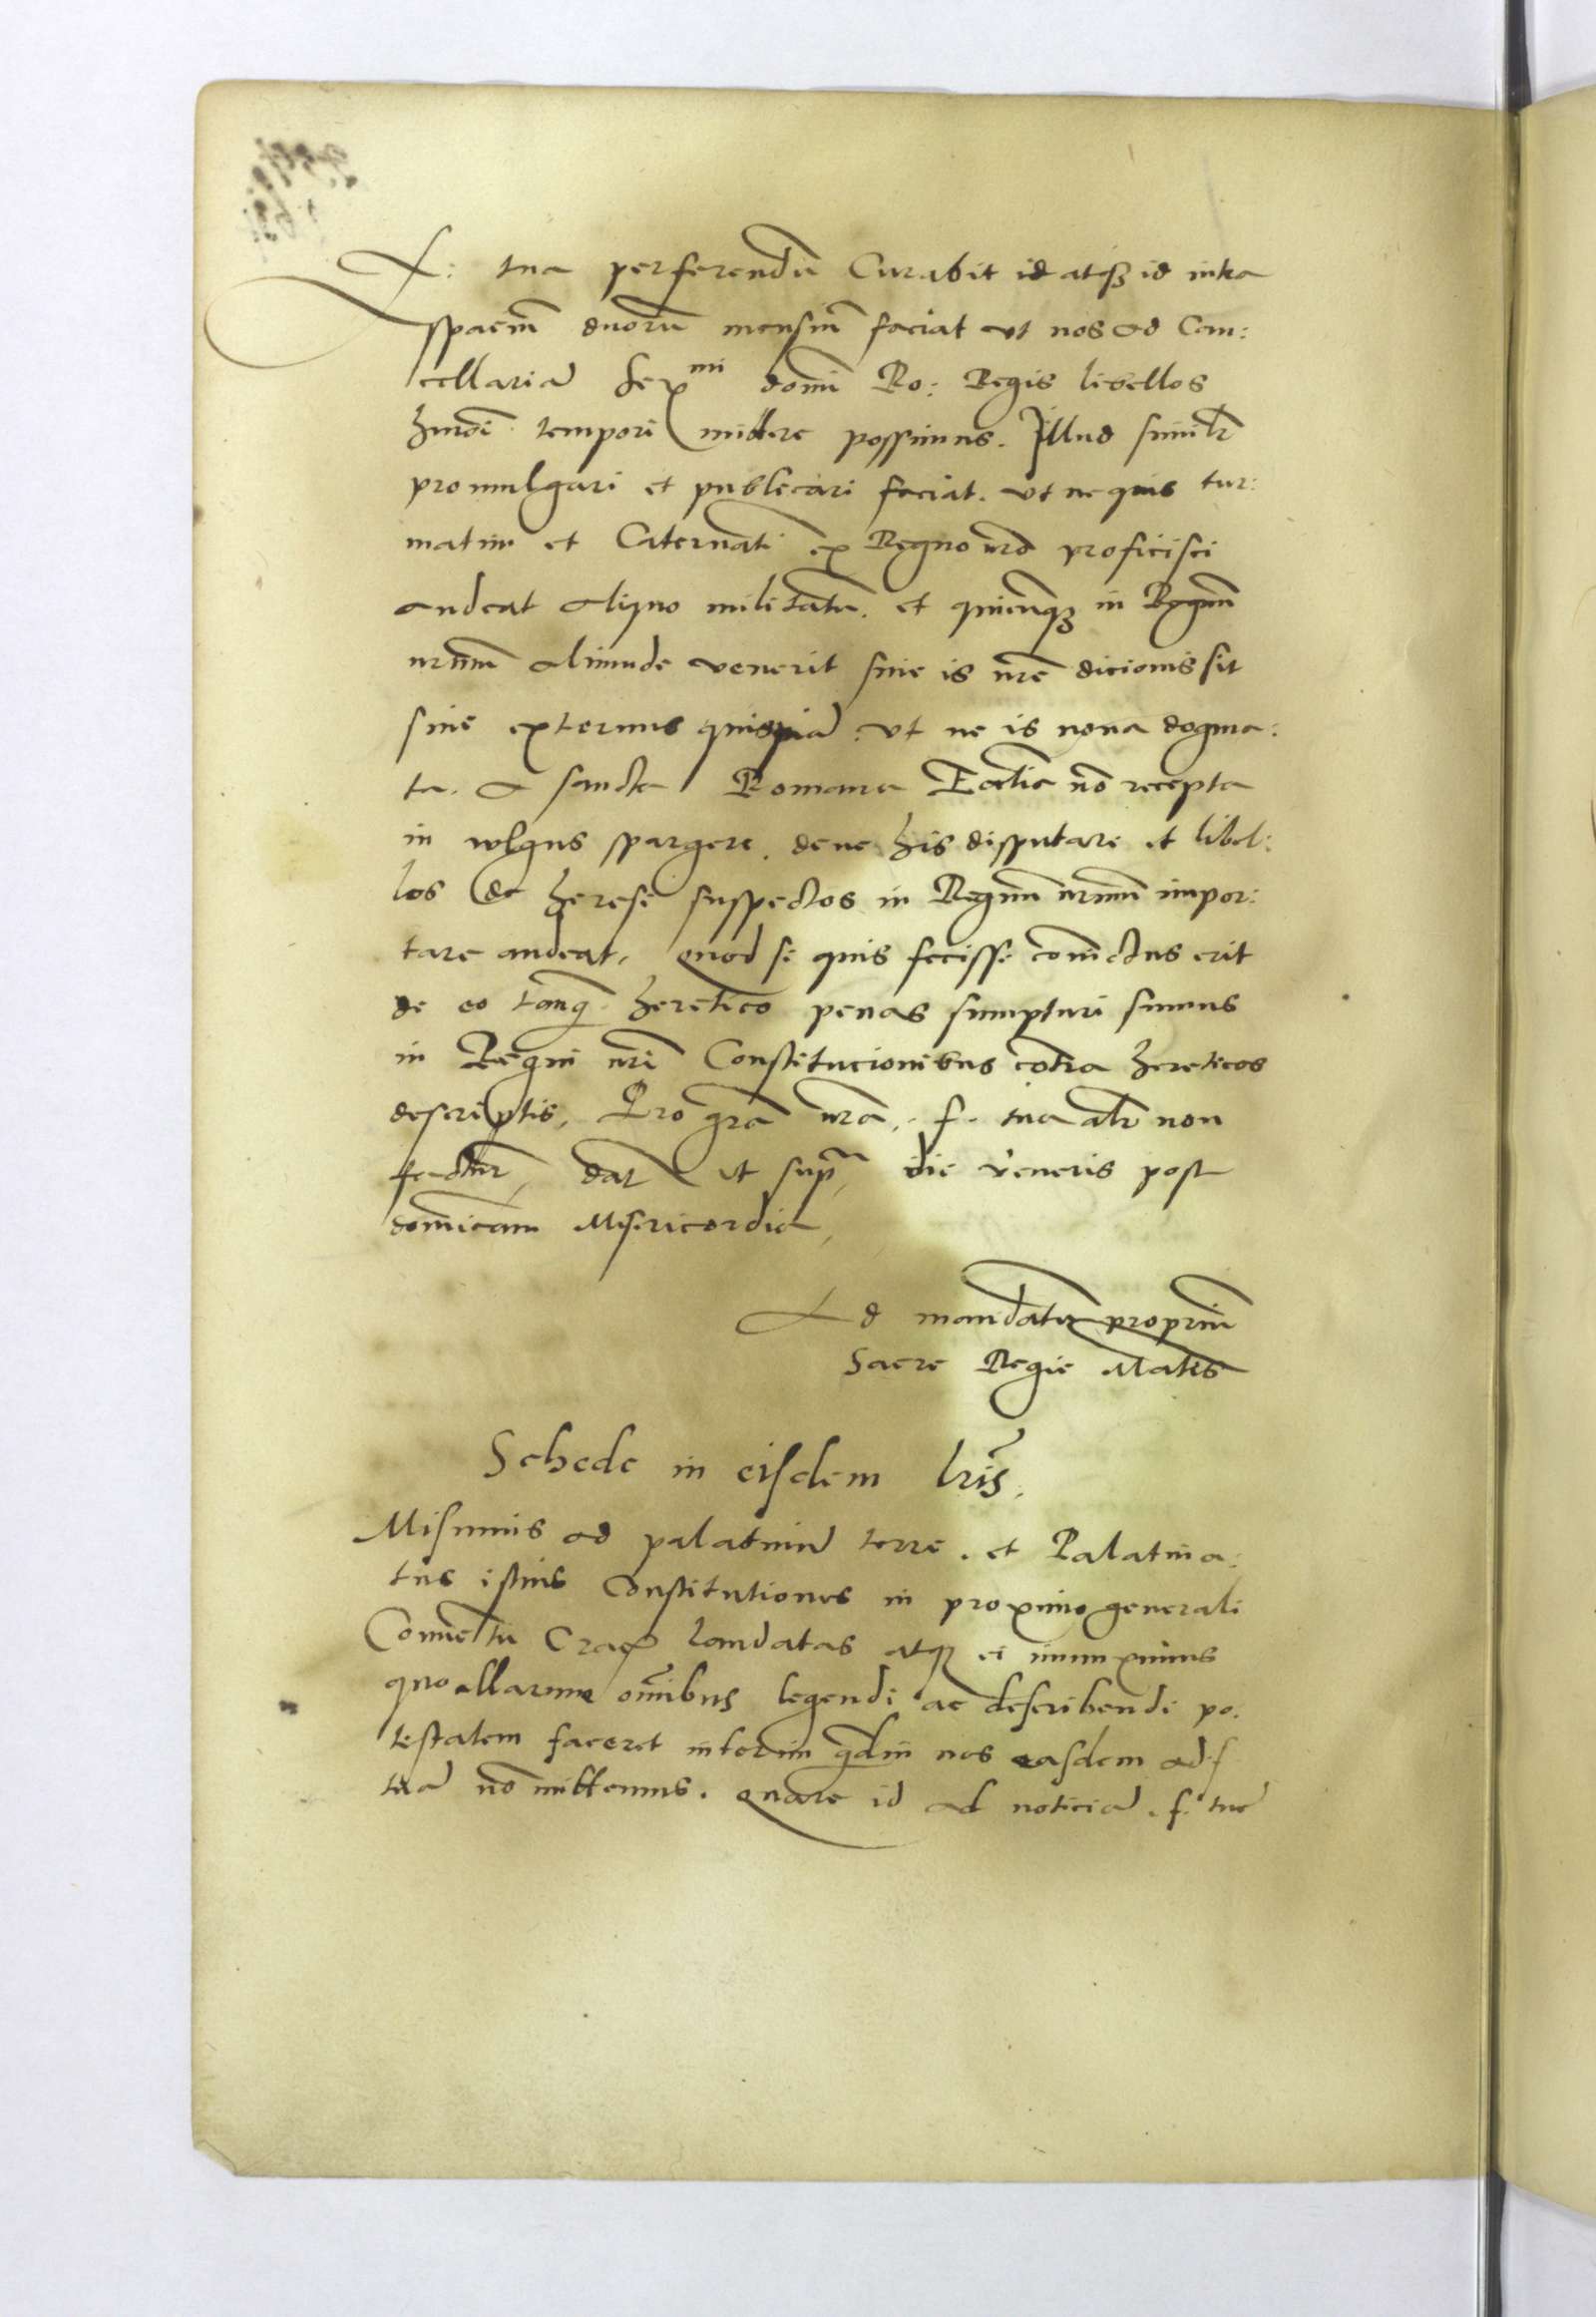 F: tua perferendū Curabit id atqz id intra
spaciū duorū mensiū faciat ut nos ad Can:
cellariā Serᵐⁱ domī Ro: Regis libellos
hmōi tempori mittere possimus. Illud simīlr
promulgari et publicari faciat. ut ne quis tur:
matim et Caternatī ex Regno nrō proficisci
audeat aliquo militatū. et quicūqz in Regnū
nrūm aliunde venerit siue is nrē dicionis sit
siue externus quispiā. ut ne is noua dogma:
ta. a sancta Romana Ecclīa nō recepta
in wlgus spargere. deue his disputare et libel:
los de heresi suspectos in Regnū nrūm impor:
tare audeat. quod si quis fecisse conuictus erit
de eo tanq heretico penas sumpturi sumus
in Regni nrī Constitucionibus cōtra hereticos
descriptis, Pro grā nrā, f. tua alr̄ non
factur̄, dat̄ ut supª, die veneris post
domīicam Misericordia,
Ad mandatū propriū
Sacre Regie Matis
Schede in eisdem lrīs,
Misimus ad palatinū terre. et Palatina:
tus istius Constitutiones in proximo generali
Conuētu Crac laudatas atqz ei iniunximus
quo illarum omībus legendi ac describendi po:
testatem faceret interim qdiu nos easdem ad f
tuā nō mittemus. quare id ad noticiā. f. tue